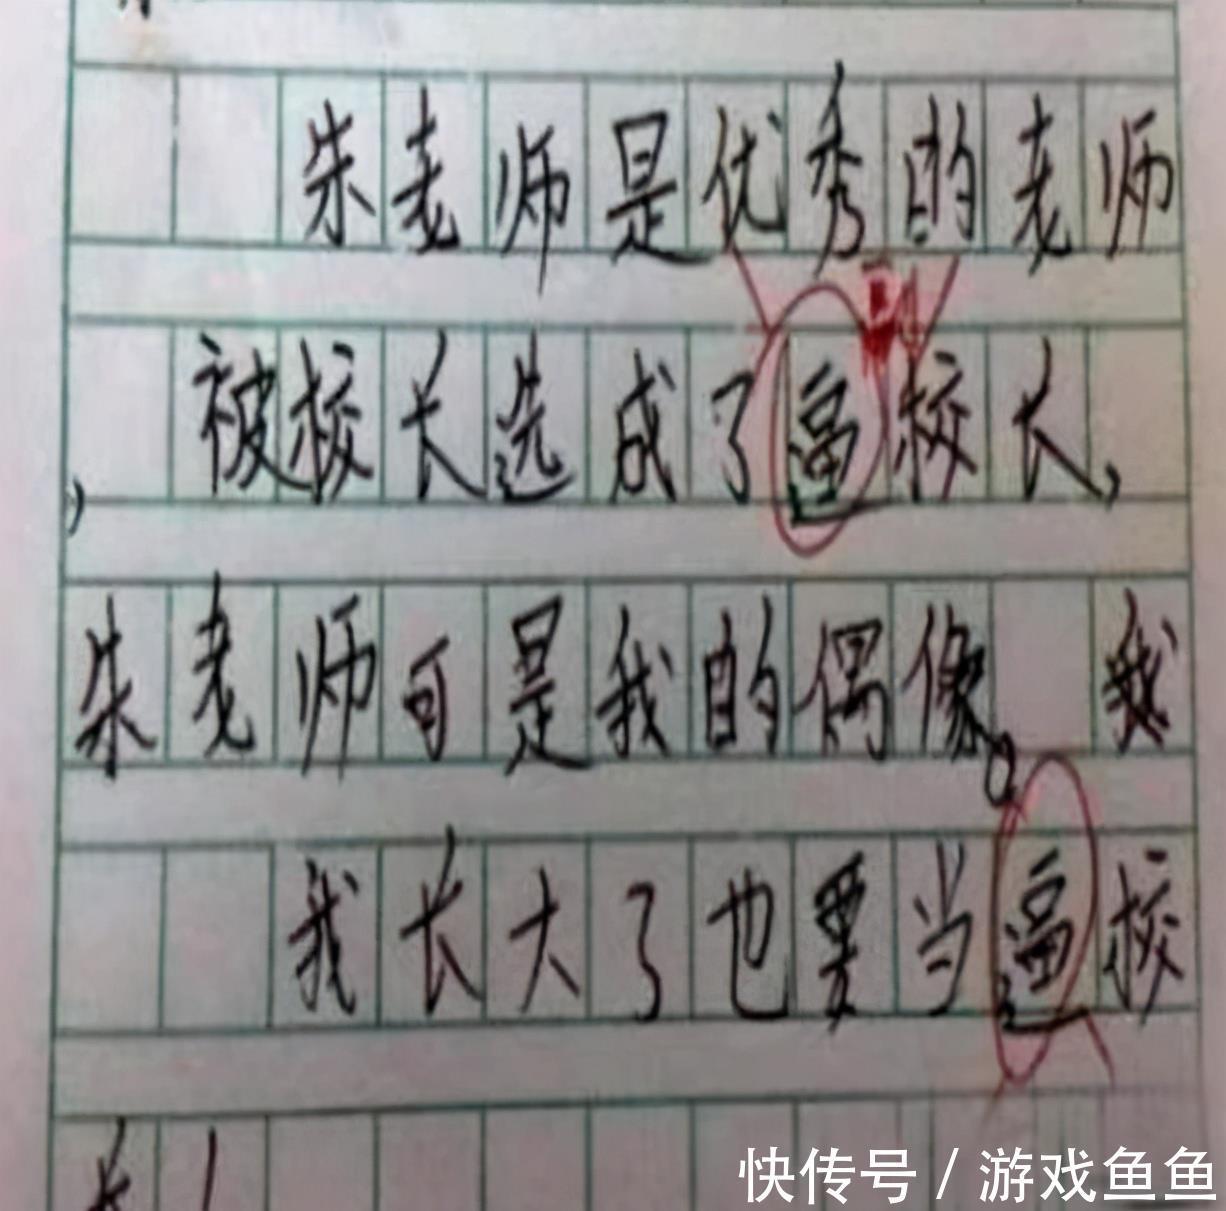 朱老师是优秀的老师
被校长选成了逼校长，
朱老师可是我的偶像。我
我长大了也要当逼校
快传号/游戏鱼鱼